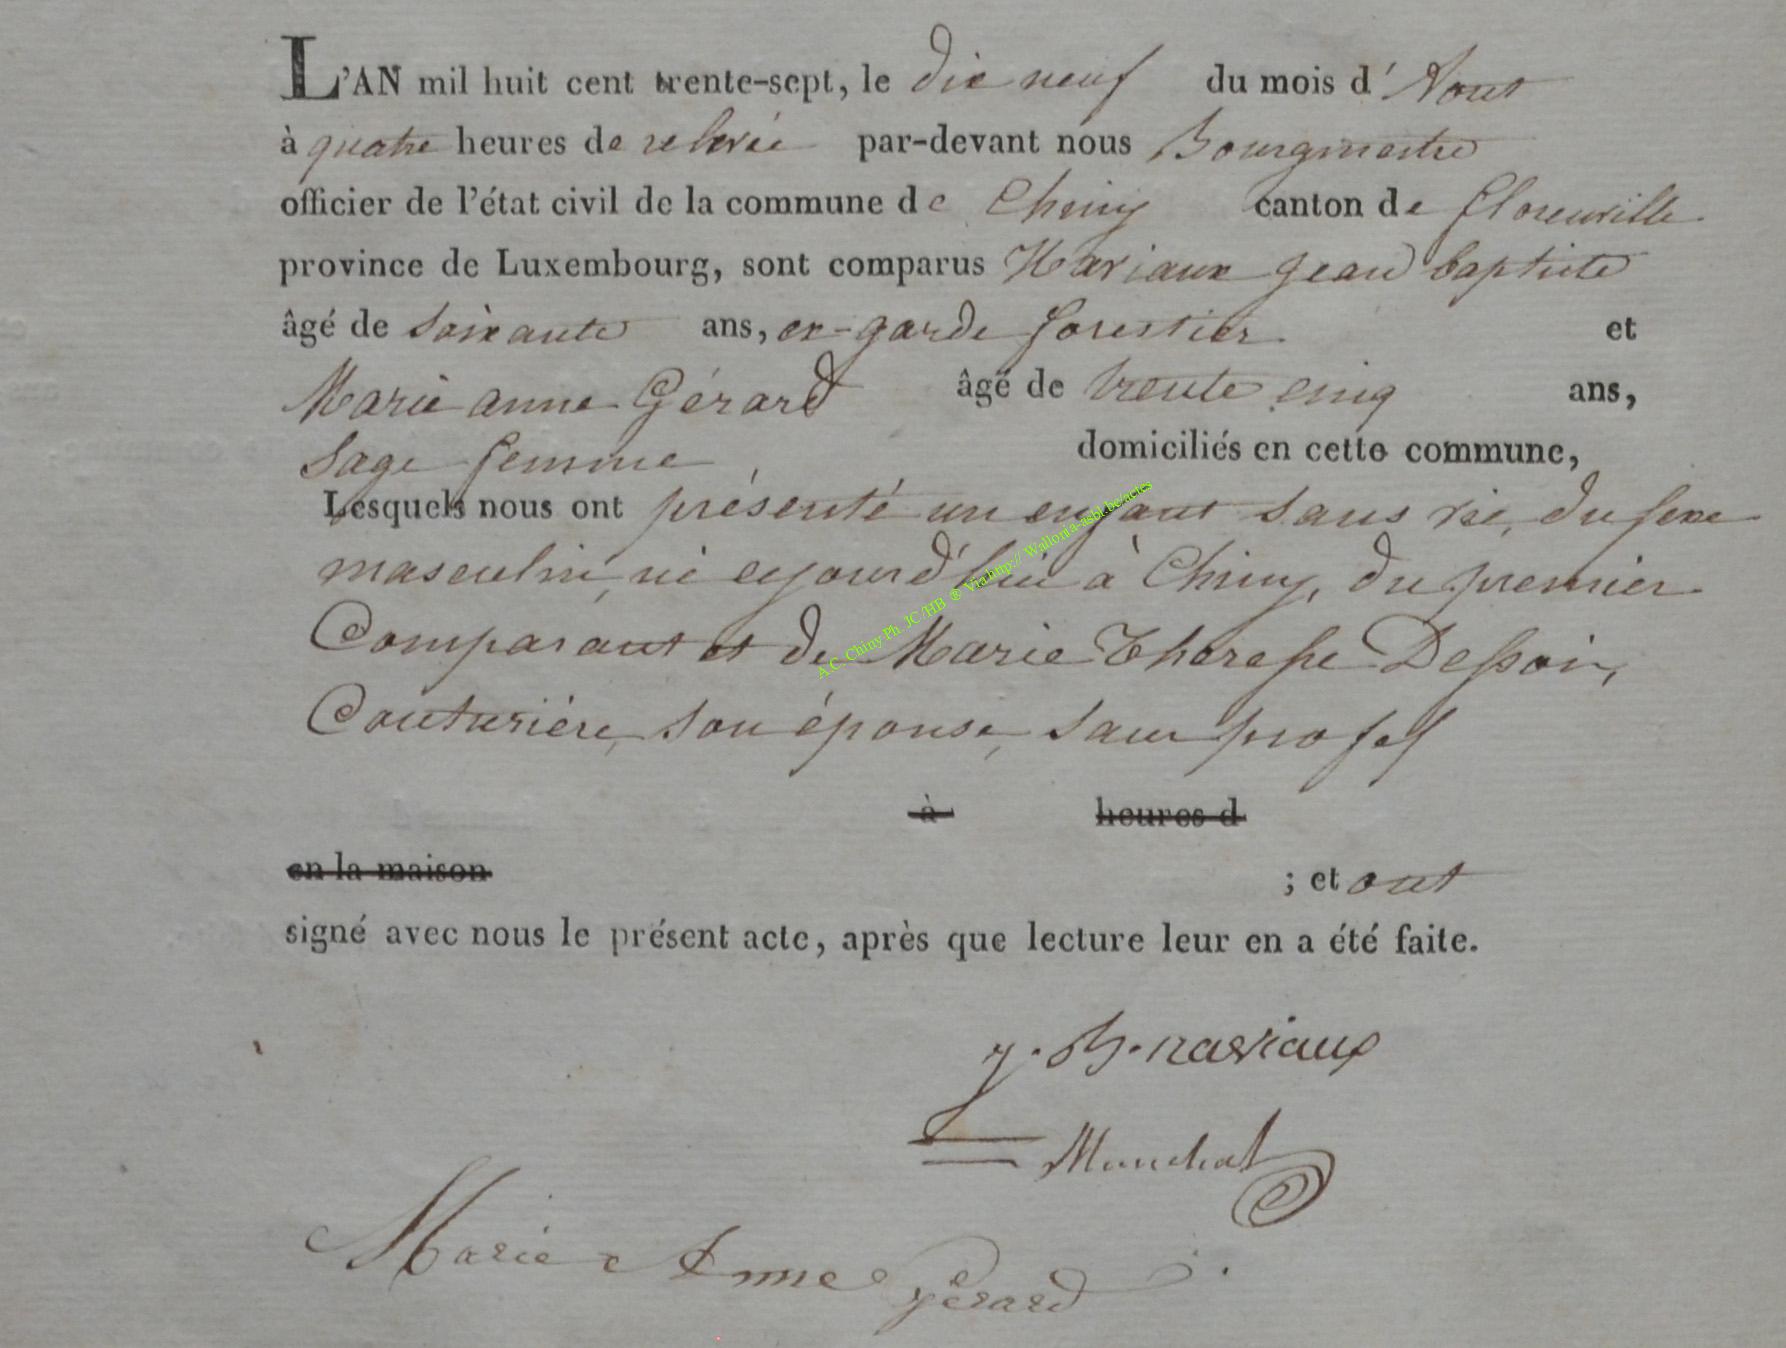 L'AN mil huit cent trente-sept, le dix neuf du mois d'Aout
à quatre heures de relevée par-devant nous Bourgmestre
officier de l'état civil de la commune de Chiny canton de florenville
province de Luxembourg, sont comparus Naviaux Jean baptiste
âgé de soixante ans, ex-garde forestier et
Marie anne Gérard âgé de trente cinq ans,
sage femme domiciliés en cette commune,
Lesquels nous ont présenté un enfant sans vie, du sexe
masculin, né aujourd'hui à Chiny, du premier
Comparant et de Marie Theresse Dessoin,
Couturière, son épouse, sans profes
à heures d
en la maison ; et ont
signé avec nous le présent acte, après que lecture leur en a été faite.
J. B. naviaux
Marie Anne gérard
A.C. Chiny Ph. JC/HB ® Via http:// Wallonia-asbl.be/actes